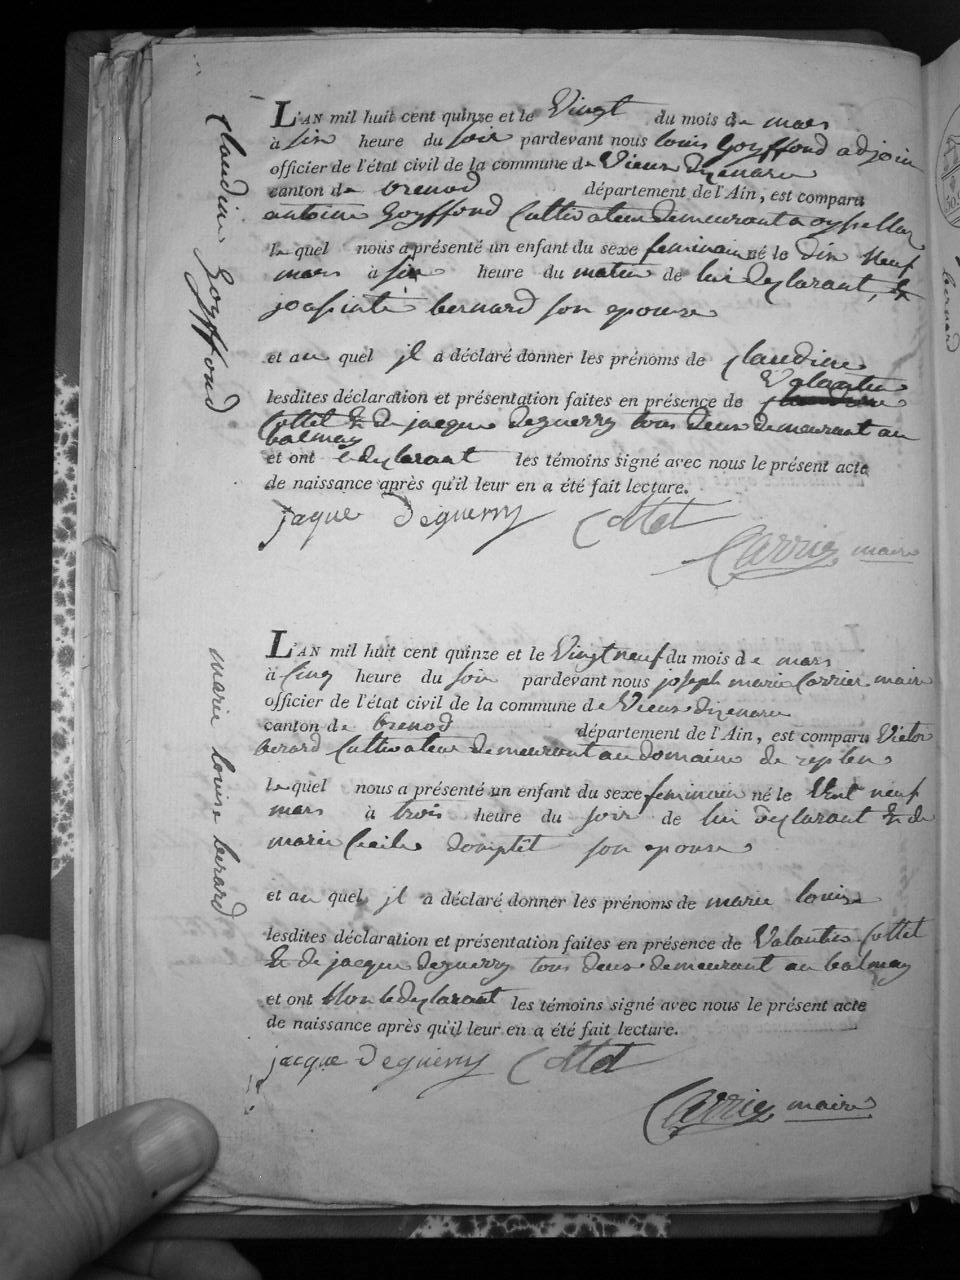 claudine Goyffond
L'AN mil huit cent quinze et le Vingt du mois de mars
à six heure du soir pardevant nous louis Goyffond adjoin
officier de l'état civil de la commune de Vieux dizenave
canton de brenod département de l'Ain, est comparu
antoine Goyffond Cultivateur demeurant a
le quel nous a présenté un enfant du sexe feminain né le dix neuf
mars à six heure du matin de lui declarant, &
joassinte bernard son epouse
et au quel jl a déclaré donner les prénoms de claudine
Valantin
lesdites déclaration et présentation faites en présence de
Cottet & de jacque deguerry tous deux demeurant au
balmay
et ont le declarant les témoins signé avec nous le présent acte
de naissance après qu'il leur en a été fait lecture.
jaque Deguerry Cottet
Carrier maire
marie louise berard
L'AN mil huit cent quinze et le Vingt neuf du mois de mars
à Cinq heure du soir pardevant nous joseph marie Carrier maire
officier de l'état civil de la commune de Vieux dizenave
canton de brenod département de l'Ain, est comparu Victor
berard Cultivateur demeurant au domaine de
le quel nous a présenté un enfant du sexe feminain né le Vent neuf
mars à trois heure du soir de lui declarant & de
marie Cecile domptet son epouse
et au quel jl a déclaré donner les prénoms de marie louise
lesdites déclaration et présentation faites en présence de Valantin Cottet
& de jacque deguerry tous deux demeurant au balmay
et ont Non le declarant les témoins signé avec nous le présent acte
de naissance après qu'il leur en a été fait lecture.
jacque Deguerry Cottet
Carrier maire
bernard